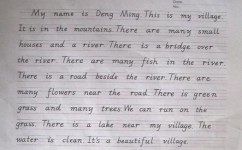 My name is Deng Ming. This is my village.
It is in the mountains. There are many small
houses and a river. There is a bridge over
the river. There are many fish in the river.
There is a road beside the river. There are
many flowers near the road. There is green
grass and many trees. We can run on the
grass. There is a lake near my village. The
water is clean. It's a beautiful village.